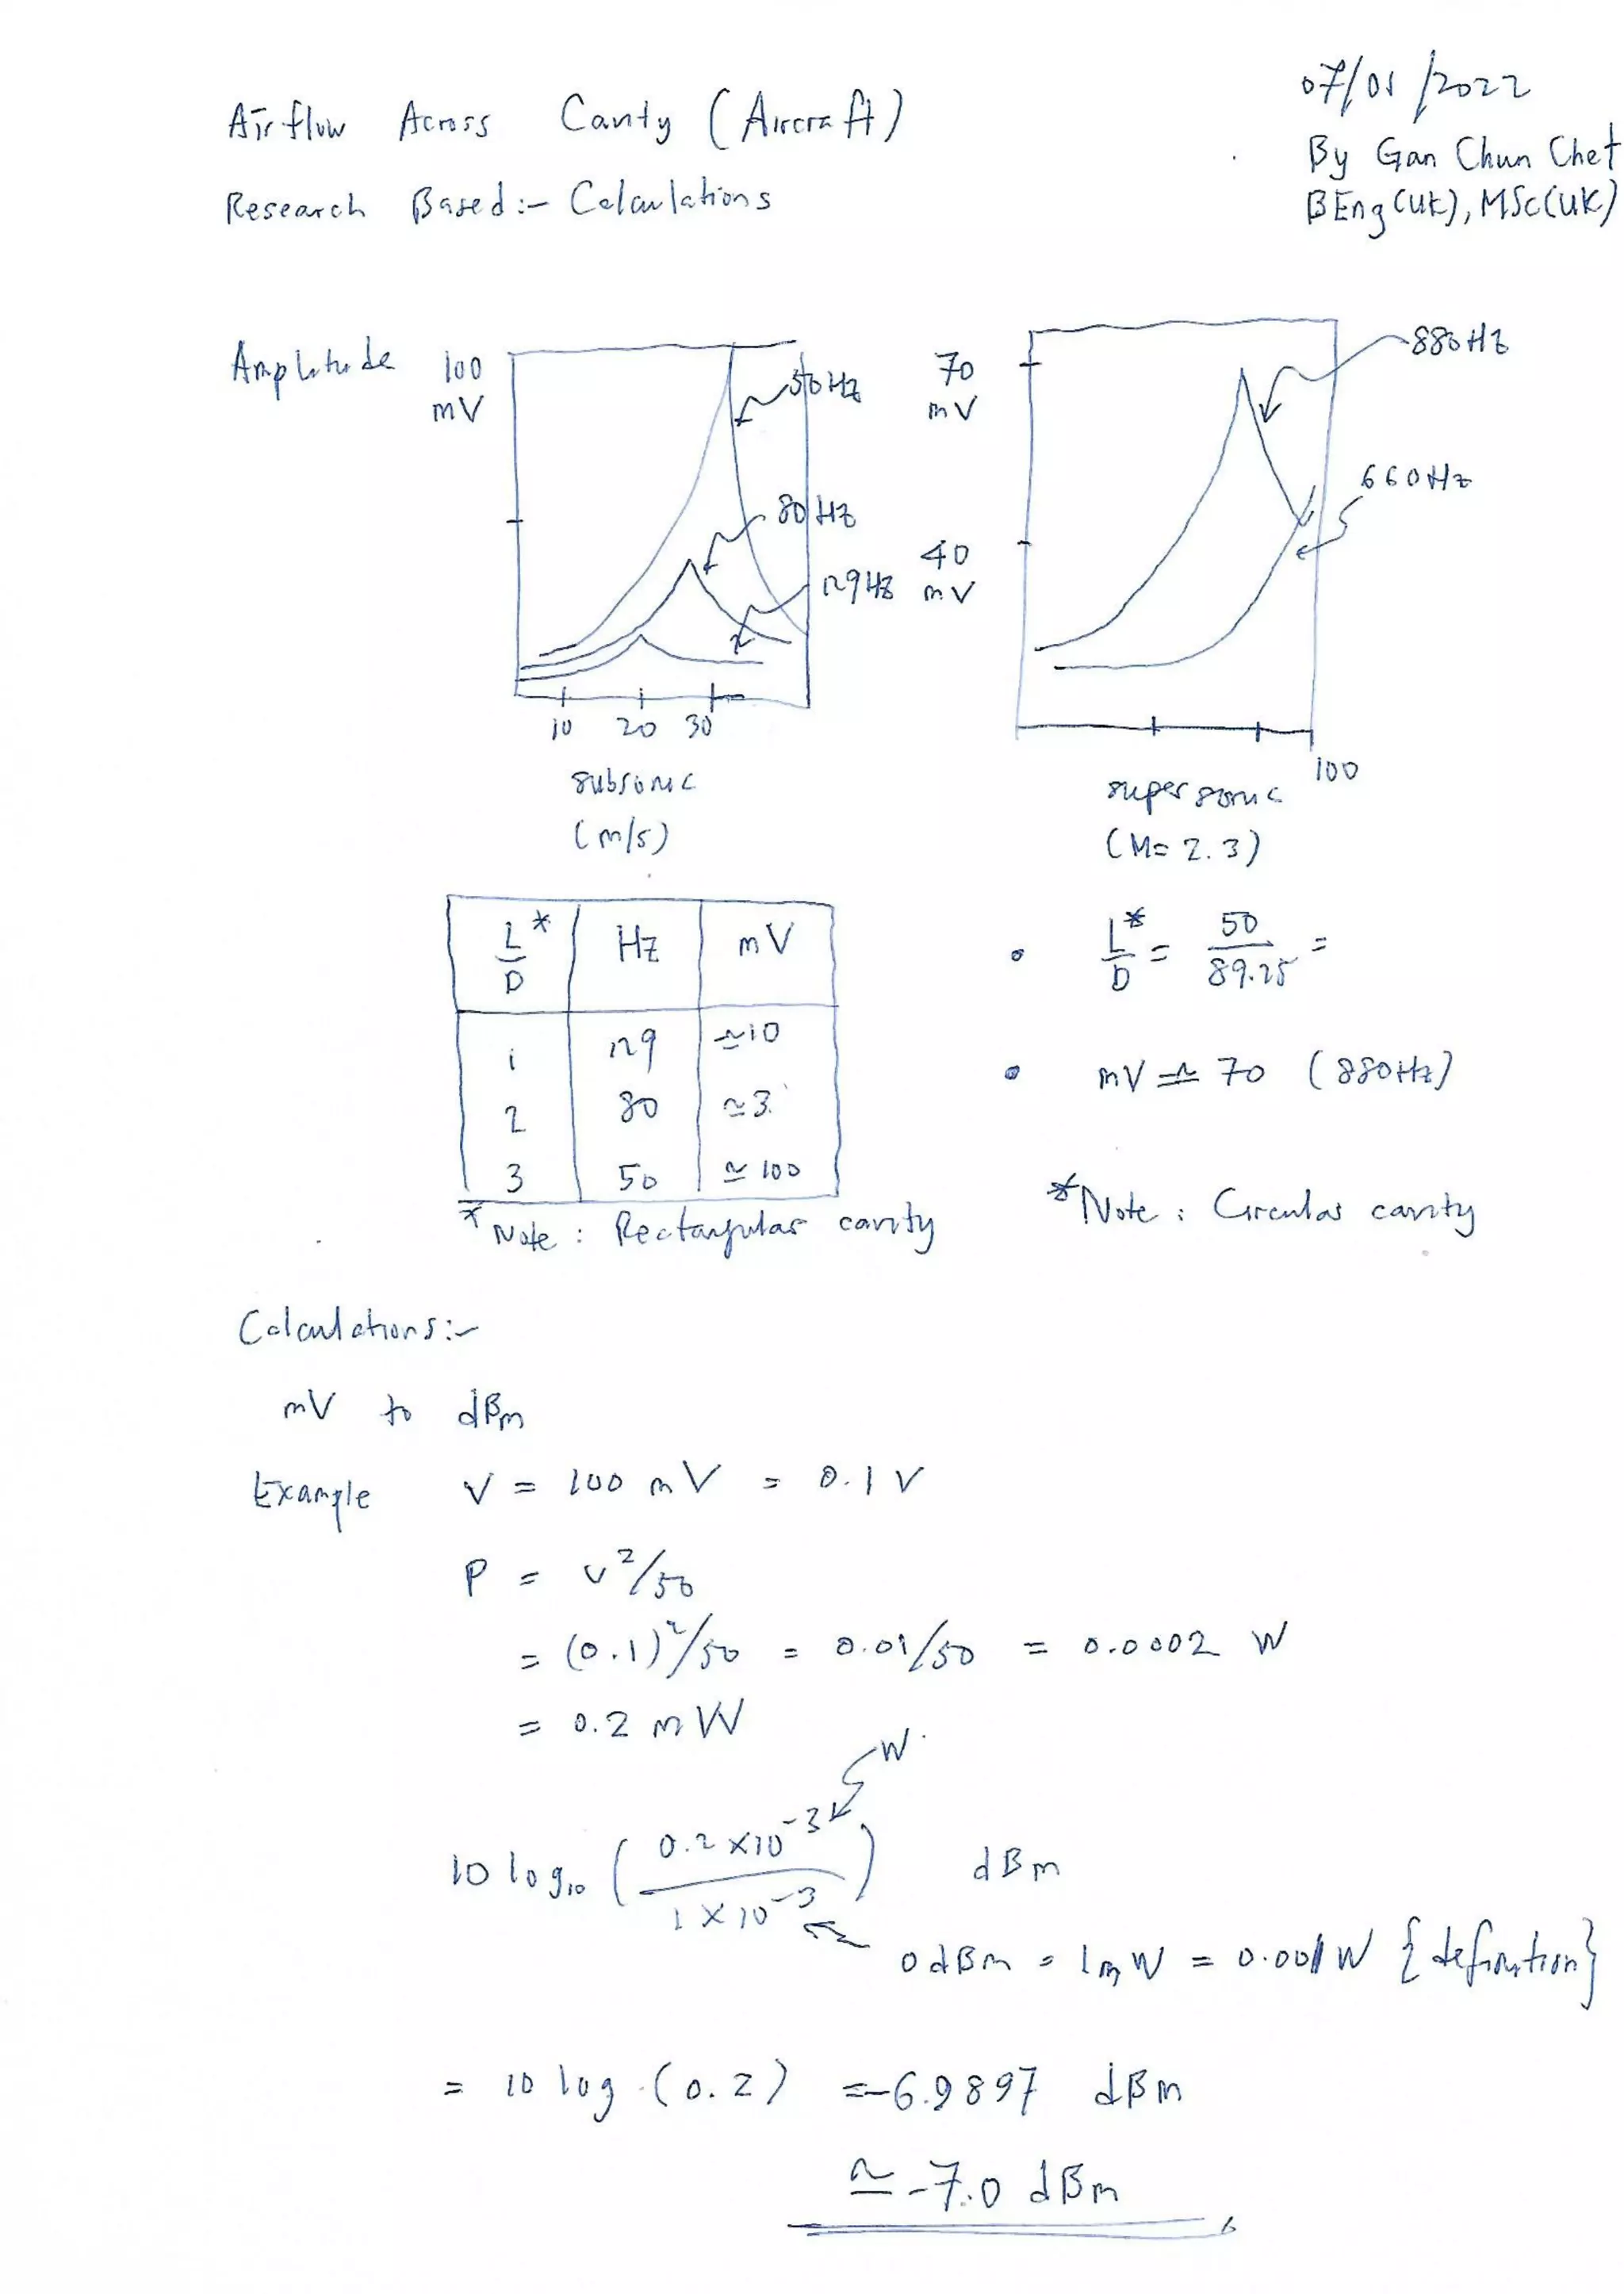 07/01/2022
Airflow Across Cavity (Aircraft)
By Gan Chun Chet
Research Based:- Calculations
BEng (UK), MSc (UK)
Amplitude
100
mV
50Hz
80Hz
129Hz
10 20 30
subsonic
(m/s)
70
mV
40
mV
880Hz
660Hz
100
supersonic
(M= 2.3)
L/D* Hz mV
1 129 ≃10
2 80 ≃3
3 50 ≃ 100
* Note : Rectangular cavity
• L*/D = 50/89.25 =
• mV ≃ 70 (880Hz)
* Note : Circular cavity
Calculations:-
mV to dBm
Example V = 100 mV = 0.1 V
P = V²/50
= (0.1)²/50 = 0.01/50 = 0.0002 W
= 0.2 mW
W.
10 log₁₀ (0.2 ×10⁻³ / 1 ×10⁻³) dBm
0 dBm = 1 mW = 0.001W {definition}
= 10 log (0.2) = -6.9897 dBm
≃ -7.0 dBm